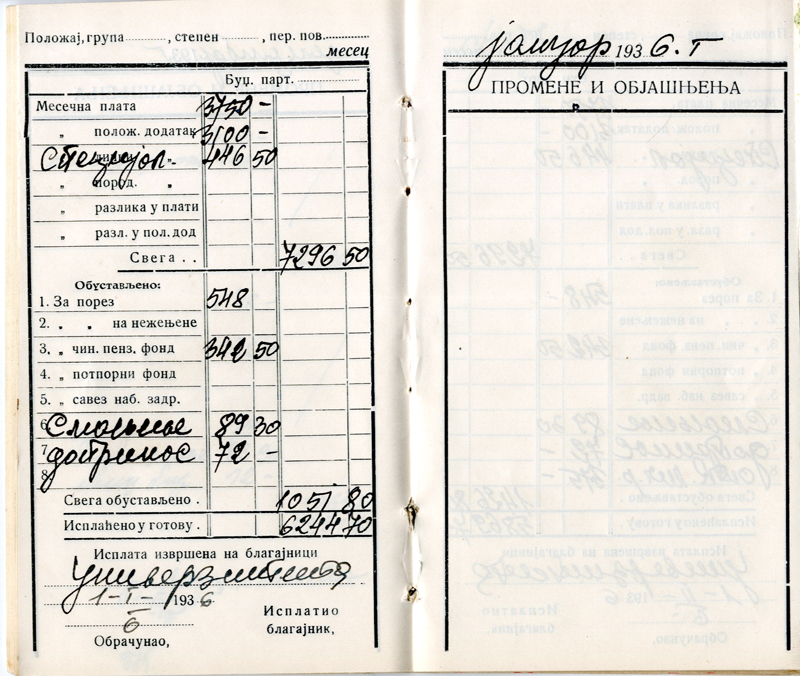 Положај, група , степен , пер. пов.
месец
Буџ. парт.
Месечна плата 3750 -
„ полож. додатак 3100 -
Специјал. 446 50
„ пород. „
„ разлика у плати
„ разл. у пол. дод
Свега . . 7296 50
Обустављено:
1. За порез 548
2. „ „ на нежењене
3. „ чин. пенз. фонд 342 50
4. „ потпорни фонд
5. „ савез наб. задр.
6 89 30
7 допринос 72 -
8
Свега обустављено . 1051 80
Исплаћено у готову . 6244 70
Исплата извршена на благајници
Универзитета
1-I- 1936
6
Обрачунао,
Исплатио
благајник,
јануар 1936. г
ПРОМЕНЕ И ОБЈАШЊЕЊА